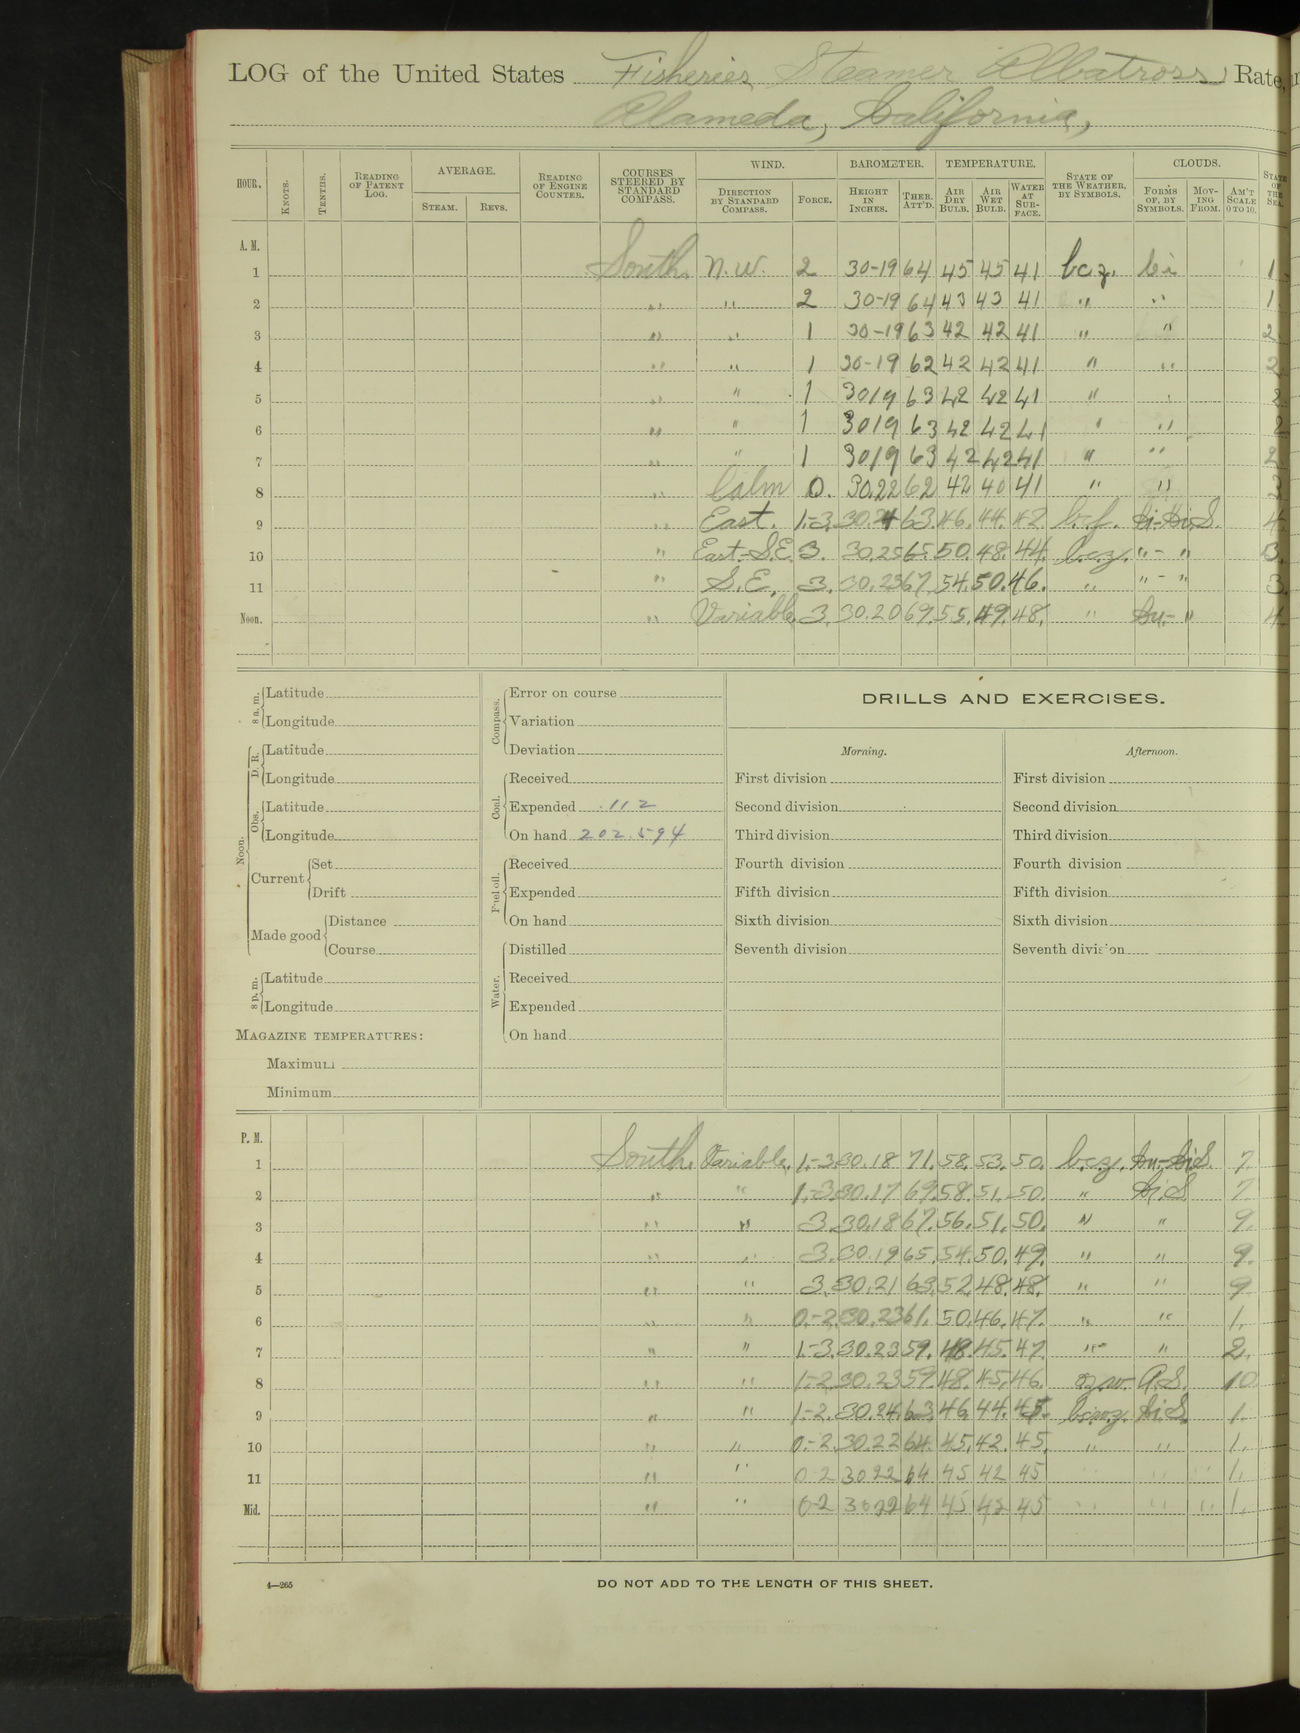 LOG of the United States Fisheries Steamer Albatross Rate,
Alameda, California,
HOUR. KNOTS. TENTHS. READING OF PATENT LOG. AVERAGE. STEAM. REVS. READING OF ENGINE COUNTER. COURSES STEERED BY STANDARD COMPASS. WIND. DIRECTION BY STANDARD COMPASS. FORCE. BAROMETER. HEIGHT IN INCHES. THER. ATT'D. TEMPERATURE. AIR DRY BULB. AIR WET BULB. WATER AT SURFACE. STATE OF THE WEATHER, BY SYMBOLS. CLOUDS. FORMS OF, BY SYMBOLS. MOVING FROM. AM'T SCALE 0 TO 10. STATE OF THE SEA.
A. M.
1 South. N.W. 2 30-19 64 45 45 41 bcz. Ci 1
2 " " 2 30-19 64 43 43 41 " " 1
3 " " 1 30-19 63 42 42 41 " " 2
4 " " 1 30-19 62 42 42 41 " " 2
5 " " 1 3019 63 42 42 41 " " 2
6 " " 1 3019 63 42 42 41 " " 2
7 " " 1 3019 63 42 42 41 " " 2
8 " Calm 0. 30.22 62 42 40 41 " "
9 " East. 1-3. 30.24 63. 46. 44. 42 b.f. Ci-Ci.S. 4.
10 " East-S.E. 3. 30.25 65. 50. 48. 44. bcz. " - " 3.
11 " S.E. 3. 30.23 67. 54. 50. 46. " " - " 3.
Noon. " Variable 3. 30.20 69. 55. 49. 48. " Cu- " 4.
8 a. m. Latitude
Longitude
Noon. D. R. Latitude
Longitude
Obs. Latitude
Longitude
Current Set
Drift
Made good Distance
Course
8 p. m. Latitude
Longitude
MAGAZINE TEMPERATURES:
Maximum
Minimum
Compass. Error on course
Variation
Deviation
Coal. Received
Expended .112
On hand 202.594
Fuel oil. Received
Expended
On hand
Water. Distilled
Received
Expended
On hand
DRILLS AND EXERCISES.
Morning.
First division
Second division
Third division
Fourth division
Fifth division
Sixth division
Seventh division
Afternoon.
First division
Second division
Third division
Fourth division
Fifth division
Sixth division
Seventh division
P. M.
1 South. Variable. 1-3. 30.18 71. 58. 53. 50. bcz. Cu-Ci.S. 7.
2 " " 1-3. 30.17 69. 58. 51. 50. " Ci.S 7.
3 " " 3. 30.18 67. 56. 51. 50. " " 9.
4 " " 3. 30.19 65. 54. 50. 49. " " 9.
5 " " 3. 30.21 63. 52. 48. 48. " " 9
6 " " 0-2. 30.23 61. 50. 46. 47. " " 1.
7 " " 1-3. 30.23 59. 48. 45. 47. " " 2.
8 " " 1-2 30.23 59. 48. 45. 46. A.S. 10
9 " " 1-2. 30.24 63. 46. 44. 45. Ci.S. 1.
10 " " 0-2. 30.22 64. 45. 42. 45. " " 1.
11 " " 0-2 3022 64 45 42 45 " " " 1.
Mid. " " 0-2 3022 64 45 42 45 " " " 1.
4—265
DO NOT ADD TO THE LENGTH OF THIS SHEET.